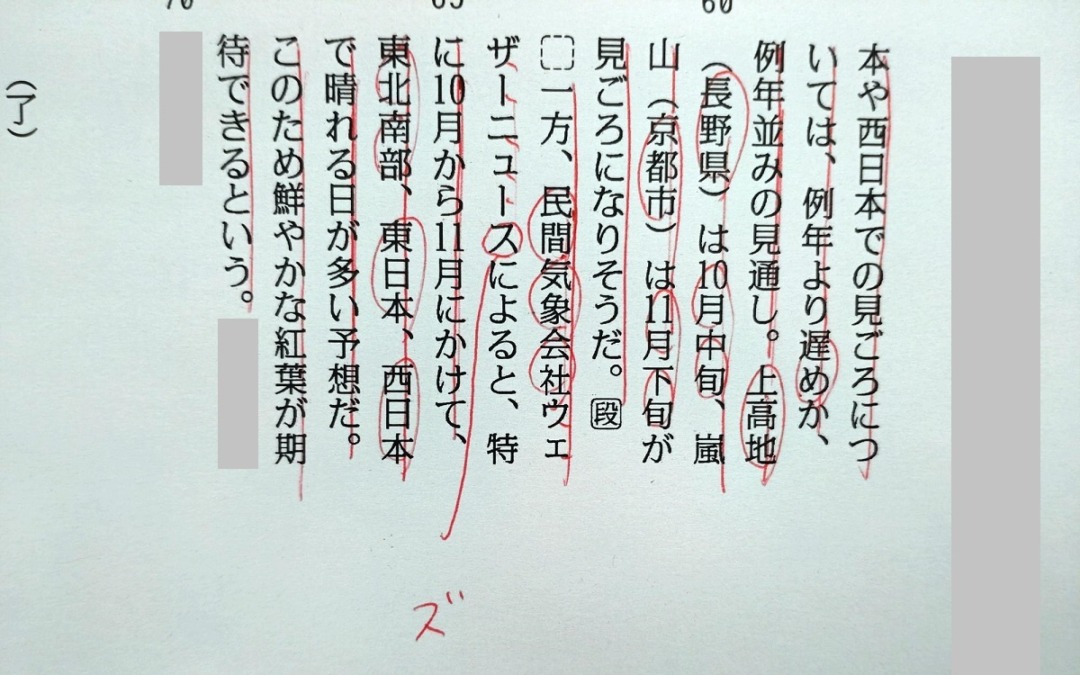 60
65
70
本や西日本での見ごろにつ
いては、例年より遅めか、
例年並みの見通し。上高地
（長野県）は10月中旬、嵐
山（京都市）は11月下旬が
見ごろになりそうだ。段
一方、民間気象会社ウェ
ザーニュースによると、特
に10月から11月にかけて、
東北南部、東日本、西日本
で晴れる日が多い予想だ。
このため鮮やかな紅葉が期
待できるという。
（了）
ズ